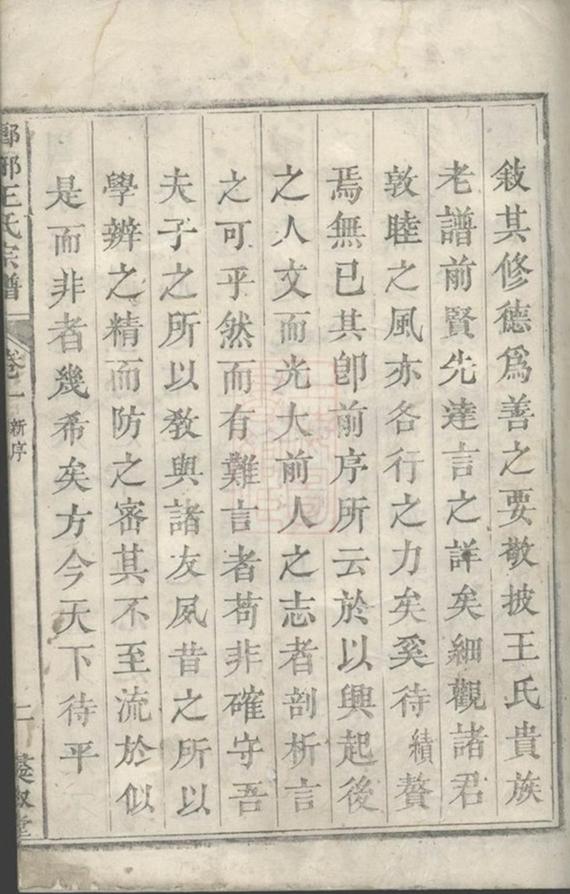 敍其修德爲善之要敬披王氏貴族
老譜前賢先達言之詳矣細觀諸君
敦睦之風亦各行之力矣奚待績贅
焉無已其卽前序所云於以興起後
之人文而光大前人之志者剖析言
之可乎然而有難言者苟非確守吾
夫子之所以教與諸友夙昔之所以
學辨之精而防之密其不至流於似
是而非者幾希矣方今天下待平
王氏宗譜
卷一
新序
二